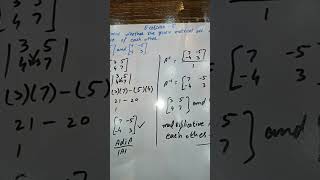 Exercise
whether the given matrices are
of each other
] and [7 -5
-4 3]
[3 5
4 7]
|3 5
4 7|
(3)(7)-(5)(4)
21-20
1
[7 -5
-4 3]
AdjA
|A|
A⁻¹ = [7 -5
-4 3]
1
A⁻¹ = [7 -5
-4 3]
[3 5
4 7] and
multiplicative
each other
] and